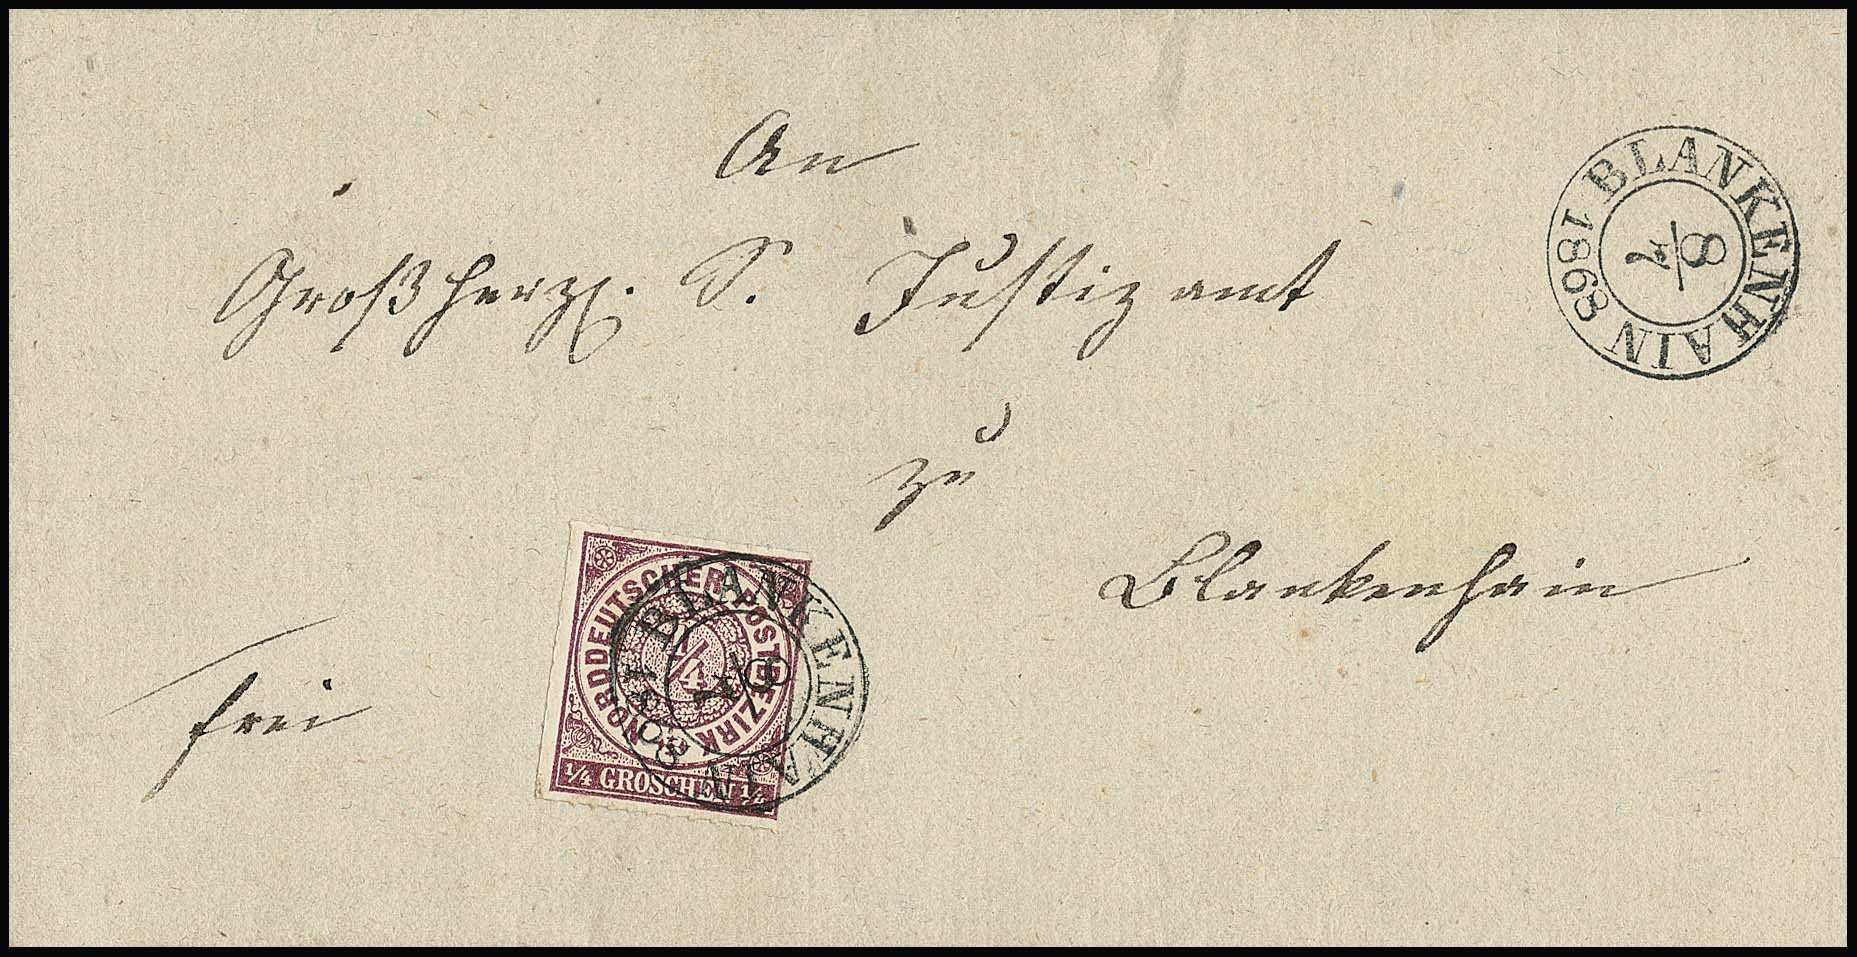 An
Großherzl. S. Justizamt
zu
Blankenhain
frei
BLANKENHAIN 1868
8/7
NORDDEUTSCHER POSTBEZIRK
1/4
1/4 GROSCHEN 1/4
BLANKENHAIN 1868
8/7